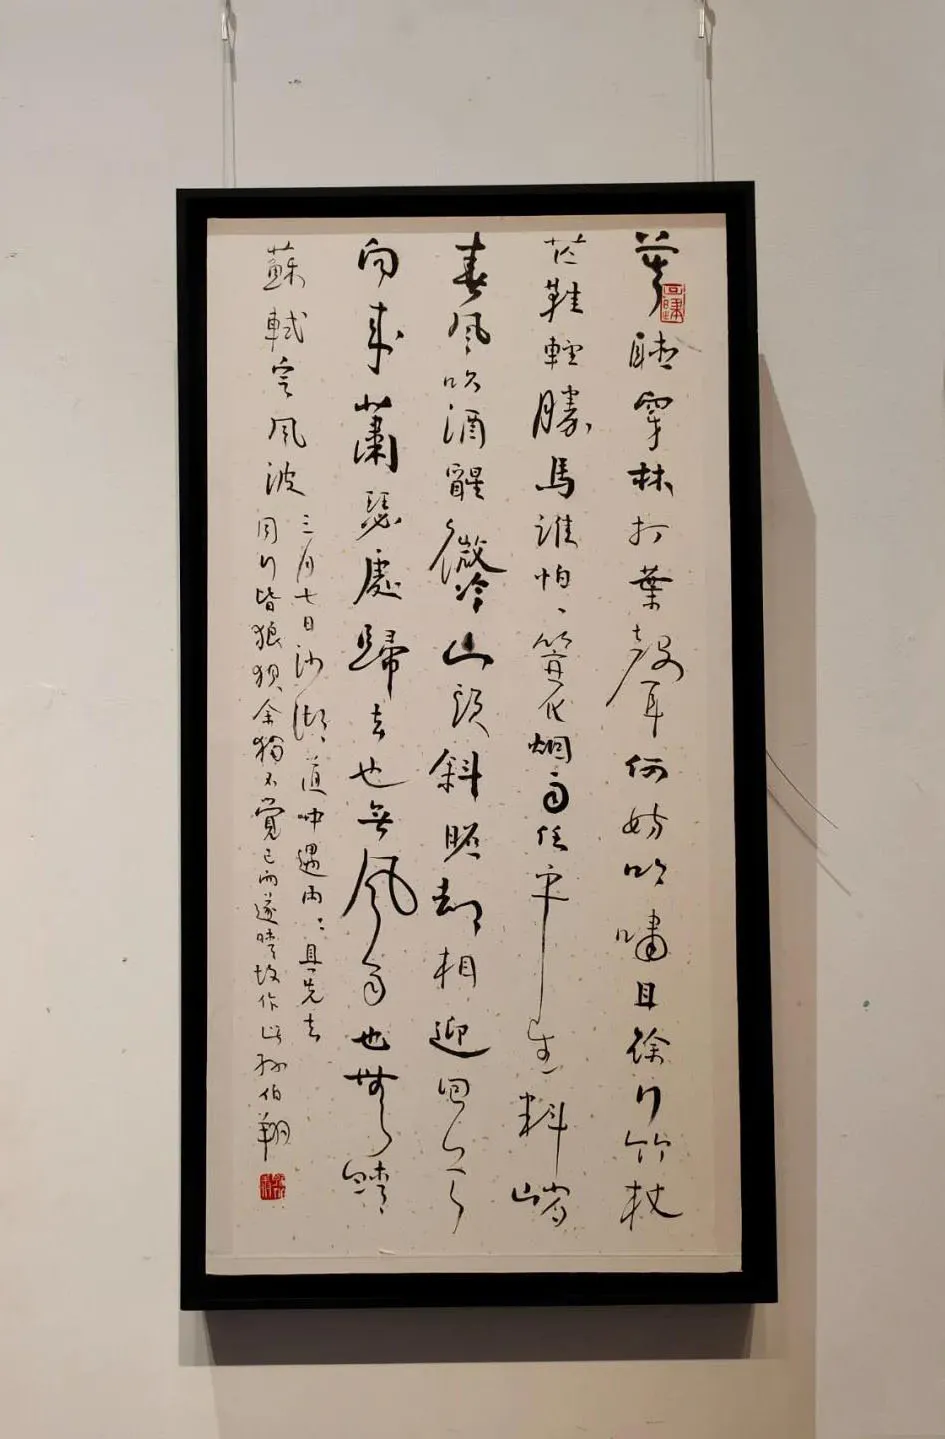 莫聽穿林打葉聲何妨吟嘯且徐行竹杖
芒鞋輕勝馬誰怕一簑烟雨任平生料峭
春風吹酒醒微冷山頭斜照却相迎回首
向來蕭瑟處歸去也無風雨也無晴
蘇軾定風波
三月七日沙湖道中遇雨〻具先去
同行皆狼狽余獨不覺已而遂晴故作此孫伯翔